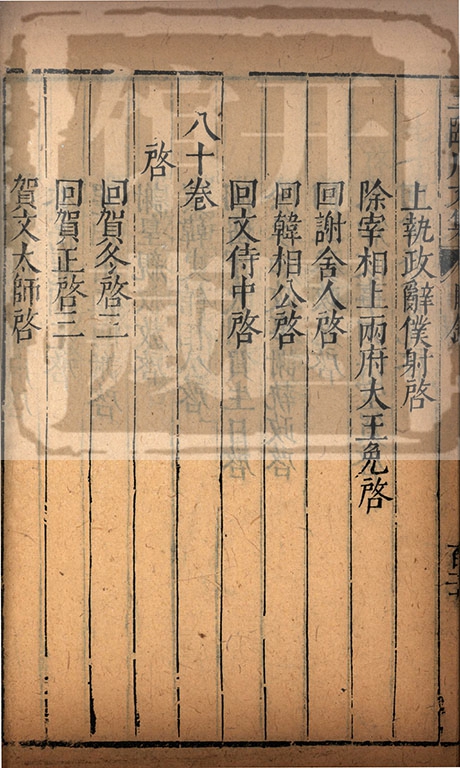 上執政辭僕射啓
除宰相上兩府大王免啓
回謝舍人啓
回韓相公啓
回文侍中啓
八十卷
啓
回賀冬啓二
回賀正啓三
賀文太師啓